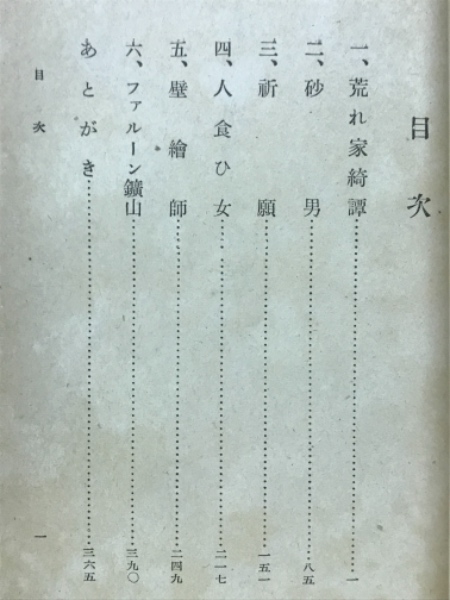 目次
一、荒れ家綺譚……一
二、砂男……八五
三、祈願……一五一
四、人食ひ女……二一七
五、壁繪師……二四九
六、ファルーン鑛山……三九〇
あとがき……三六五
目次 一